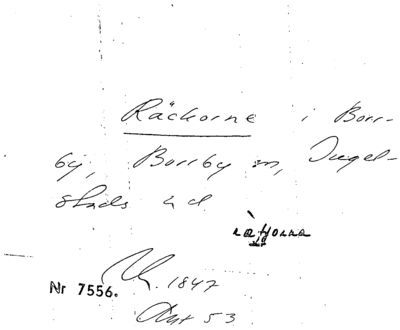 Räckorne i Borr-
by, Borrby sn, Ingel-
stads hd
Nr 7556. 1847
53